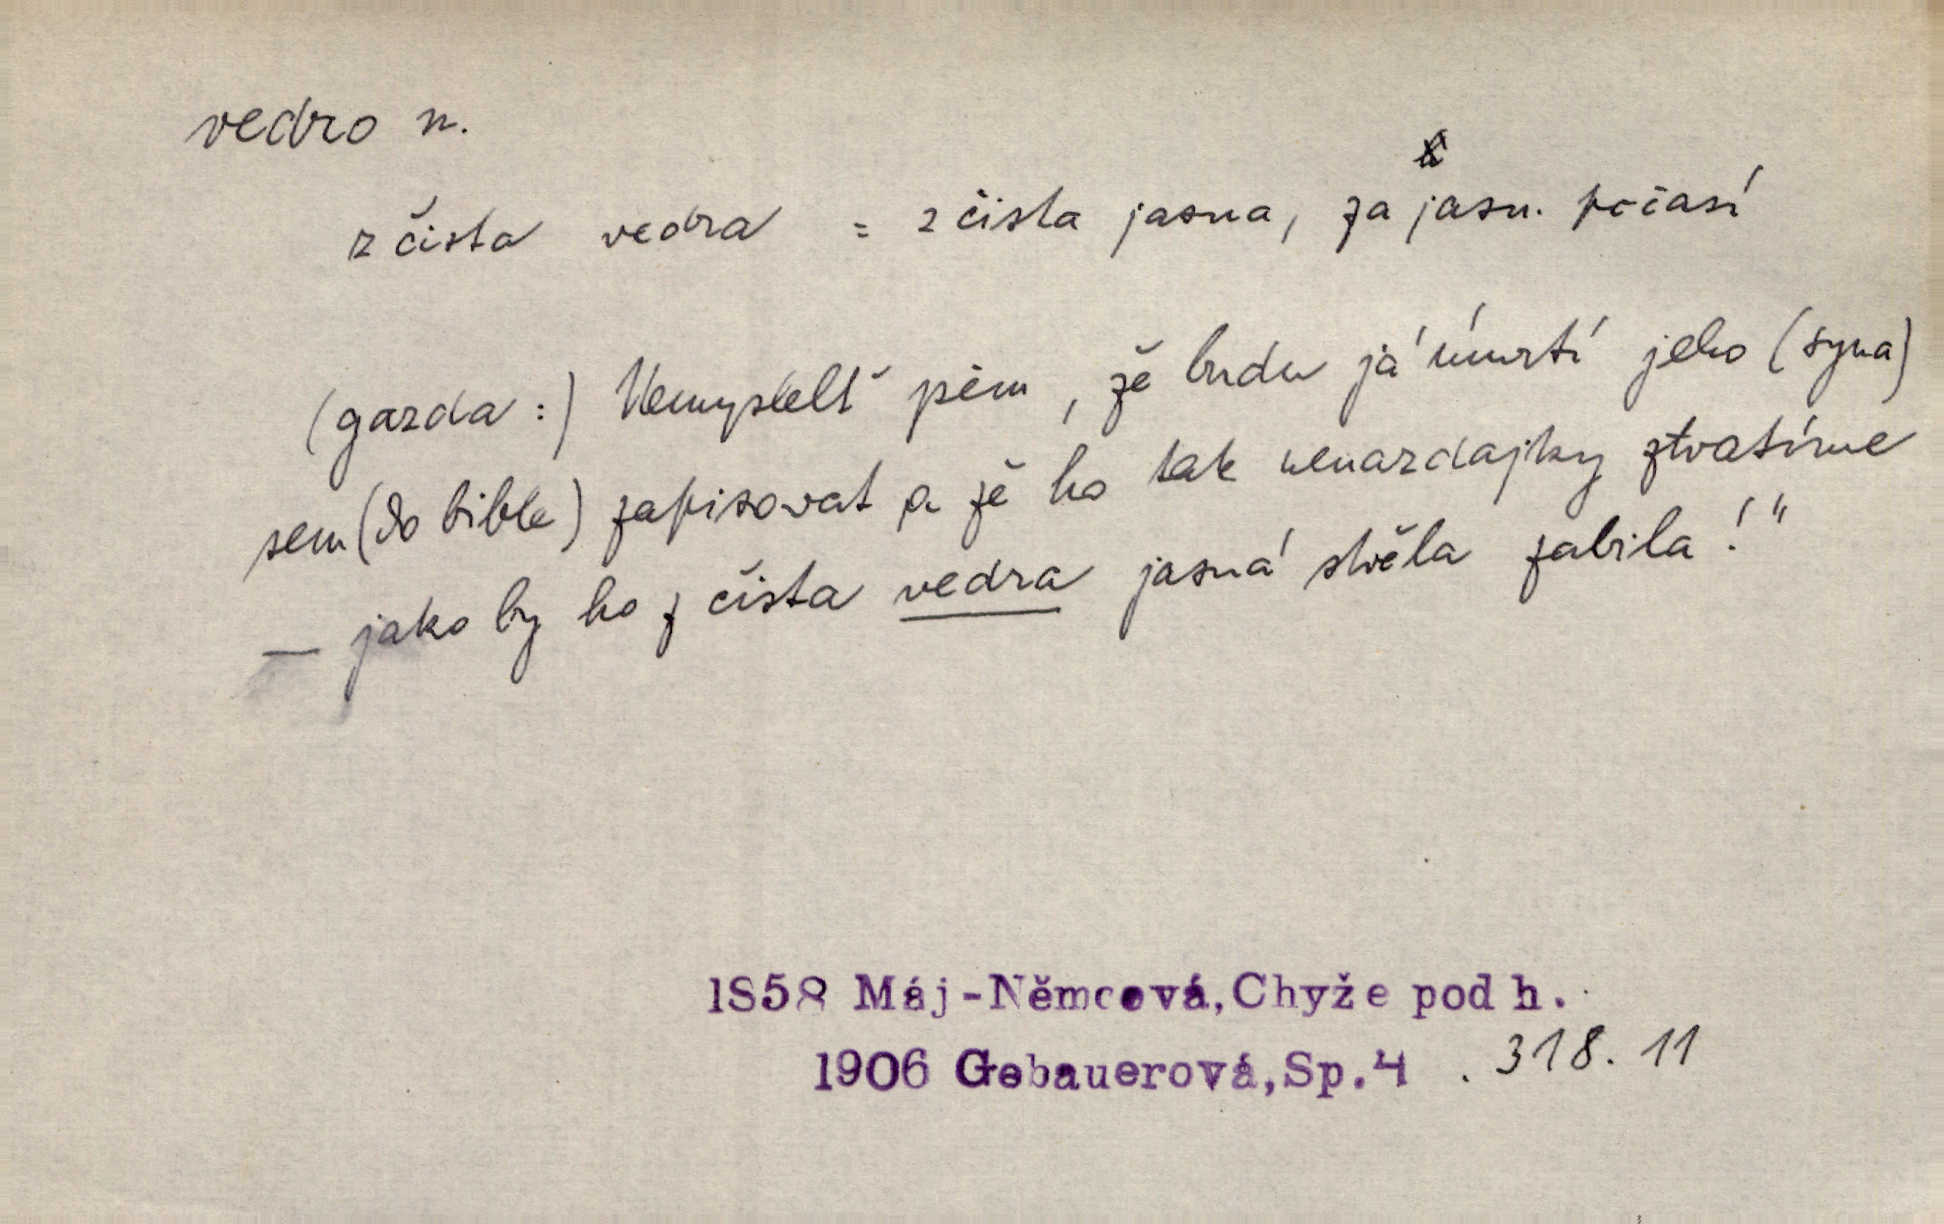 vedro n.
z čista vedra = z čista jasna, za jasn. počasí
(gazda:) Nemyslelť jsem, že budu já úmrtí jeho (syna)
sem (do bible) zapisovat a že ho tak nenazdajky ztratíme
— jako by ho z čista vedra jasná střela zabila!"
1858 Máj-Němcová, Chyže pod h.
1906 Gebauerová, Sp.4 . 318. 11